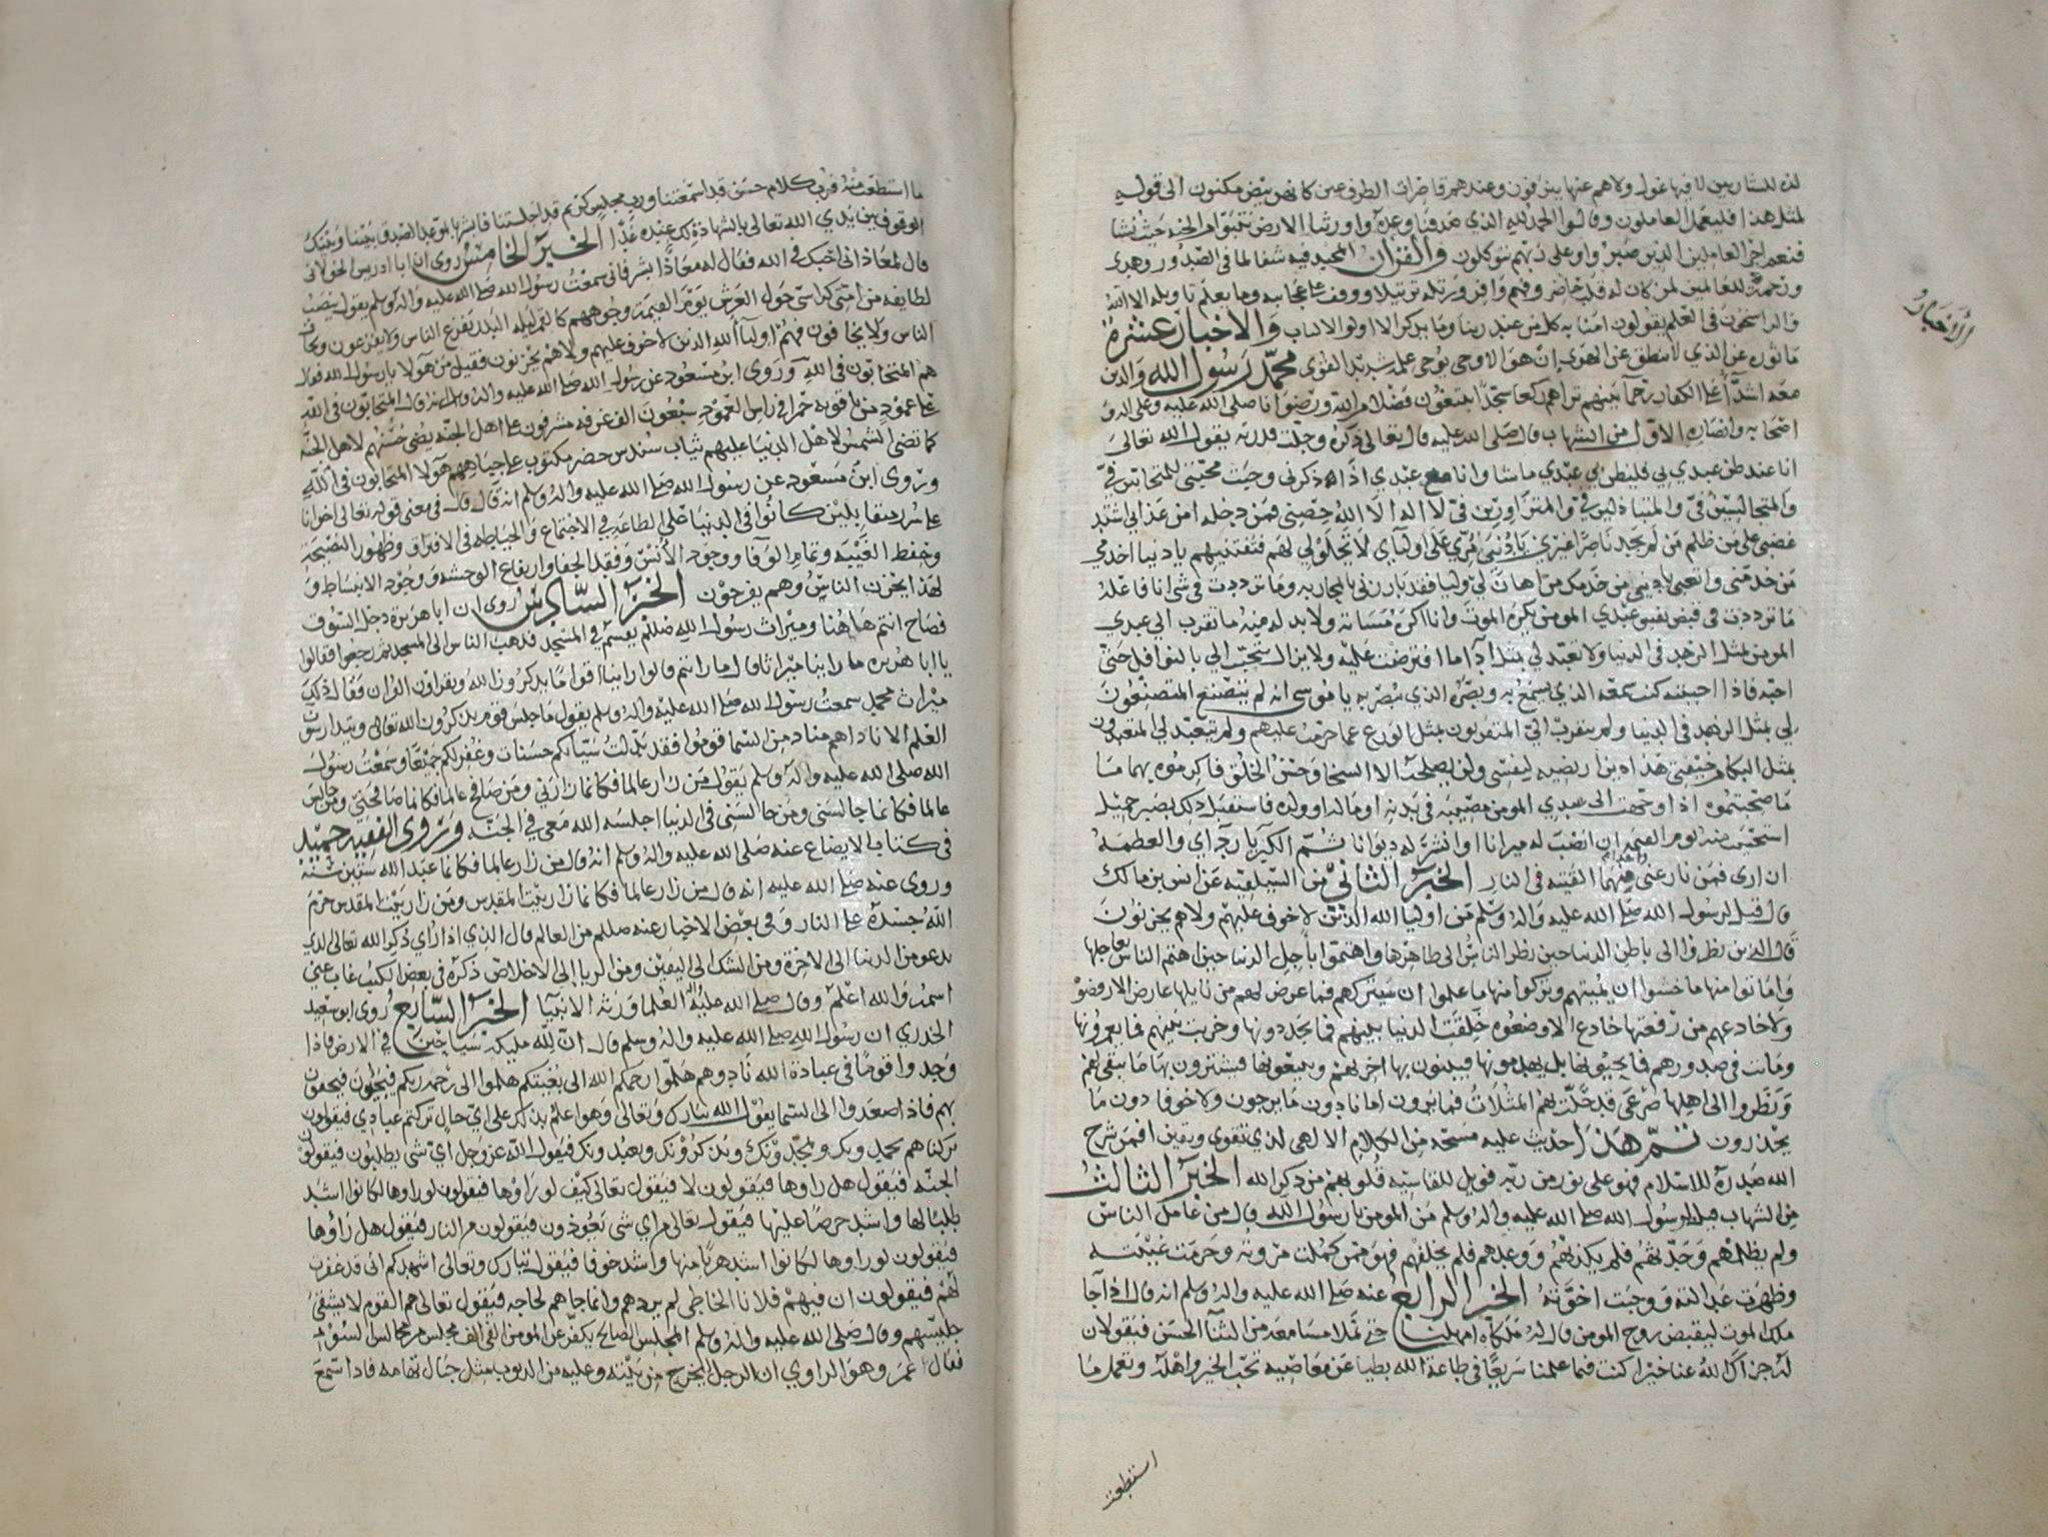 لذه للشاربين لا فيها غول ولا هم عنها ينزفون وعندهم قاصرات الطرف عين كانهن بيض مكنون الى قوله
لمثل هذا فليعمل العاملون وقالوا الحمد لله الذي صدقنا وعده واورثنا الارض نتبوا من الجنه حيث نشا
فنعم اجر العاملين الذين صبروا وعلى ربهم يتوكلون والقران المجيد فيه شفا لما في الصدور وهدى
ورحمة للعالمين لمن كان له قلب حاضر وفهم وافر ورتله ترتيلا ووقف على عجايبه وما يعلم تاويله الا الله
والراسخون في العلم يقولون امنا به كل من عند ربنا وما يذكر الا اولوا الالباب والاخبار عشرة
ماثوره عن الذي لا ينطق عن الهوى ان هو الا وحي يوحى علمه شديد القوى محمد رسول الله والذين
معه اشدآ على الكفار رحمآ بينهم تراهم ركعا سجدا يبتغون فضلا من الله ورضوانا صلى الله عليه وعلى اله و
اصحابه وانصاره الاول من الشهاب قال صلى الله عليه قال تعالى ذكره وجلت قدرته يقول الله تعالى
انا عند ظن عبدي بي فليظن بي عبدي ماشا وانا مع عبدي اذا ذكرني وجبت محبتي للمتحابين في
والمتجالسين في والمتباذلين في والمتزاورين في لا اله الا الله حصني فمن دخله امن عذابي اشتد
غضبي على من ظلم من لم يجد ناصرا غيري يا دنيا مري على اوليائي لا تحلولي لهم فتفتنيهم يا دنيا اخدمي
من خدمني واتعبي يا دنيا من خدمك من اهان لي وليا فقد بارزني بالمحاربه وما ترددت في شي انا فاعله
ما ترددت في قبض نفس عبدي المومن يكره الموت وانا اكره مساته ولا بد له منه ما تقرب الي عبدي
المومن بمثل الزهد في الدنيا ولا تعبد لي بمثل ادآ ما افترضت عليه ولا يزال يتحبب الي بالنوافل حتى
احبه فاذا احببته كنت سمعه الذي يسمع به وبصره الذي يبصر به يا موسى انه لم يتصنع المتصنعون
لي بمثل الزهد في الدنيا ولم يتقرب الي المتقربون بمثل الورع عما حرمت عليهم ولم يتعبد لي المتعبدون
بمثل البكا من خيفتي هذا دين ارتضيه لنفسي ولن يصلحه الا السخا وحسن الخلق فاكرموه بهما ما
صحبتموه اذا وجهت الى عبدي المومن مصيبه في بدنه او ماله او ولده فاستقبل ذلك بصبر جميل
استحييت منه يوم القيمه ان انصب له ميزانا او انشر له ديوانا ثم الكبريا ردآي والعظمه
ازاري فمن نازعني منهما القيته في النار الخبر الثاني من السيلقيه عن انس بن مالك
قال قيل لرسول الله صلى الله عليه واله وسلم من اوليا الله الذين لا خوف عليهم ولا هم يحزنون
قال الذين نظروا الى باطن الدنيا حين نظر الناس الى ظاهرها واهتموا باجل الدنيا حين اهتم الناس بعاجلها
واماتوا منها ما خشوا ان يميتهم وتركوا منها ما علموا ان سيتركهم فما عرض لهم من نايلها عارض الا رفضوه
ولا خادعهم من رفعتها خادع الا وضعوه خلقت الدنيا بينهم فما يجددونها وخربت بينهم فما يعمرونها
وماتت في صدورهم فما يحيونها بل يهدمونها فيبنون بها اخرتهم ويبيعونها فيشترون بها ما يبقى لهم
ونظروا الى اهلها صرعى قد حلت بهم المثلات فما يرون امانا دون ما يرجون ولا خوفا دون ما
يحذرون ثم هذا حديث عليه مسحه من الكلام الالهي لذي تقوى ويقين افمن شرح
الله صدره للاسلام فهو على نور من ربه فويل للقاسيه قلوبهم من ذكر الله الخبر الثالث
من الشهاب قيل لرسول الله صلى الله عليه واله وسلم من المومن يا رسول الله قال من عامل الناس
ولم يظلمهم وحدثهم فلم يكذبهم ووعدهم فلم يخلفهم فهو ممن كملت مروته وحرمت غيبته
وظهرت عدالته ووجبت اخوته الخبر الرابع عنه صلى الله عليه واله وسلم انه قال اذا جا
ملك الموت ليقبض روح المومن قال له ملكاه امهلنا حتى نملا مسامعه من الثنآ الحسن فيقولان
له جزاك الله عنا خيرا كنت فما علمنا سريعا في طاعة الله بطيا عن معاصيه تحب الخير واهله وتعمل ما
استطعت
الاخبار
ما استطعت منه فرب كلام حسن قد اسمعتنا ورب مجلس كريم قد اجلستنا فابشر بالموعد الصدق بيننا وبينك
الوقوف بين يدي الله تعالى بالشهادة لك عنده غدا الخبر الخامس روي ان ابا ادريس الخولاني
قال لمعاذ اني احبك في الله فقال له معاذ ابشر فاني سمعت رسول الله صلى الله عليه واله وسلم يقول ينصب
لطايفه من امتي كراسي حول العرش يوم القيمة وجوههم كالقمر ليله البدر يفزع الناس ولا يفزعون ويخاف
الناس ولا يخافون فهم اوليآ الله الذين لا خوف عليهم ولا هم يحزنون فقيل من هولا يا رسول الله فقال
هم المتحابون في الله وروى ابن مسعود عن رسول الله صلى الله عليه واله وسلم انه قال المتحابون في الله
على عمود من ياقوته حمرا في راس العمود سبعون الف غرفه مشرفون على اهل الجنه يضي حسنهم لاهل الجنه
كما تضي الشمس لاهل الدنيا عليهم ثياب سندس خضر مكتوب على جباههم هولا المتحابون في الله
وروى ابن مسعود عن رسول الله صلى الله عليه واله وسلم انه قال في معنى قوله تعالى اخوانا
على سرر متقابلين كانوا في الدنيا على الطاعه في الاجتماع والحياطه في الافتراق وظهور النصيحة
وحفظ الغيبه وتمام الوفا ووجود الانس وفقد الجفا وارتفاع الوحشه ووجود الانبساط و
لهذا يحزن الناس وهم يفرحون الخبر السادس روي ان ابا هريرة دخل السوق
فصاح انتم هاهنا وميراث رسول الله صلى الله عليه وسلم يقسم في المسجد فذهب الناس الى المسجد ثم رجعوا فقالوا
يا ابا هريره ما راينا ميراثا قال ما رايتم قالوا راينا اقواما يذكرون الله ويقراون القران فقال ذلك
ميراث محمد سمعت رسول الله صلى الله عليه واله وسلم يقول ما جلس قوم يذكرون الله تعالى ويتدارسون
العلم الا ناداهم مناد من السما قوموا فقد بدلت سياتكم حسنات وغفر لكم جميعا وسمعت رسول
الله صلى الله عليه واله وسلم يقول من زار عالما فكانما زارني ومن صافح عالما فكانما صافحني ومن جالس
عالما فكانما جالسني ومن جالسني في الدنيا اجلسه الله معي في الجنه وروى الفقيه حميد
في كتاب عنه صلى الله عليه واله وسلم انه قال من زار عالما فكانما عبد الله ستين سنه
وروي عنه صلى الله عليه انه قال من زار عالما فكانما زار بيت المقدس ومن زار بيت المقدس حرم
الله جسده على النار وفي بعض الاخبار عنه صلى الله عليه وسلم من العالم قال الذي اذا راي ذكر الله تعالى الذي
يدعو من الدنيا الى الاخرة ومن الشك الى اليقين ومن الريا الى الاخلاص ذكره في بعض الكتب غاب عني
اسمه والله اعلم وقال صلى الله عليه واله العلما ورثه الانبيآ الخبر السابع روى ابو سعيد
الخدري ان رسول الله صلى الله عليه واله وسلم قال ان لله مليكه سياحين في الارض فاذا
وجدوا قوما في عبادة الله نادوهم هلموا رحمكم الله الى بغيتكم هلموا الى رحمه ربكم فيجيون فيحفون
بهم فاذا صعدوا الى السما يقول الله تبارك وتعالى وهو اعلم بذلك على اي حال تركتم عبادي فيقولون
تركناهم يحمدونك ويمجدونك ويذكرونك ويعبدونك فيقول الله عز وجل اي شي يطلبون فيقولون
الجنه فيقول هل راوها فيقولون لا فيقول تعالى كيف لو راوها فيقولون لو راوها لكانوا اشد
طلبا لها واشد حرصا عليها فيقول تعالى من اي شي يتعوذون فيقولون من النار فيقول هل راوها
فيقولون لو راوها لكانوا اشد هربا منها واشد خوفا فيقول تبارك وتعالى اشهدكم اني قد غفرت
لهم فيقولون ان فيهم فلانا الخاطي لم يردهم وانما جاهم لحاجه فيقول تعالى هم القوم لا يشقى
جليسهم وقال صلى الله عليه واله وسلم المجلس الصالح يكفر عن المومن الفي الف مجلس من مجالس السوء
فقال عمر وهو الراوي ان الرجل ليخرج من بيته وعليه من الذنوب مثل جبال تهامه فاذا سمع